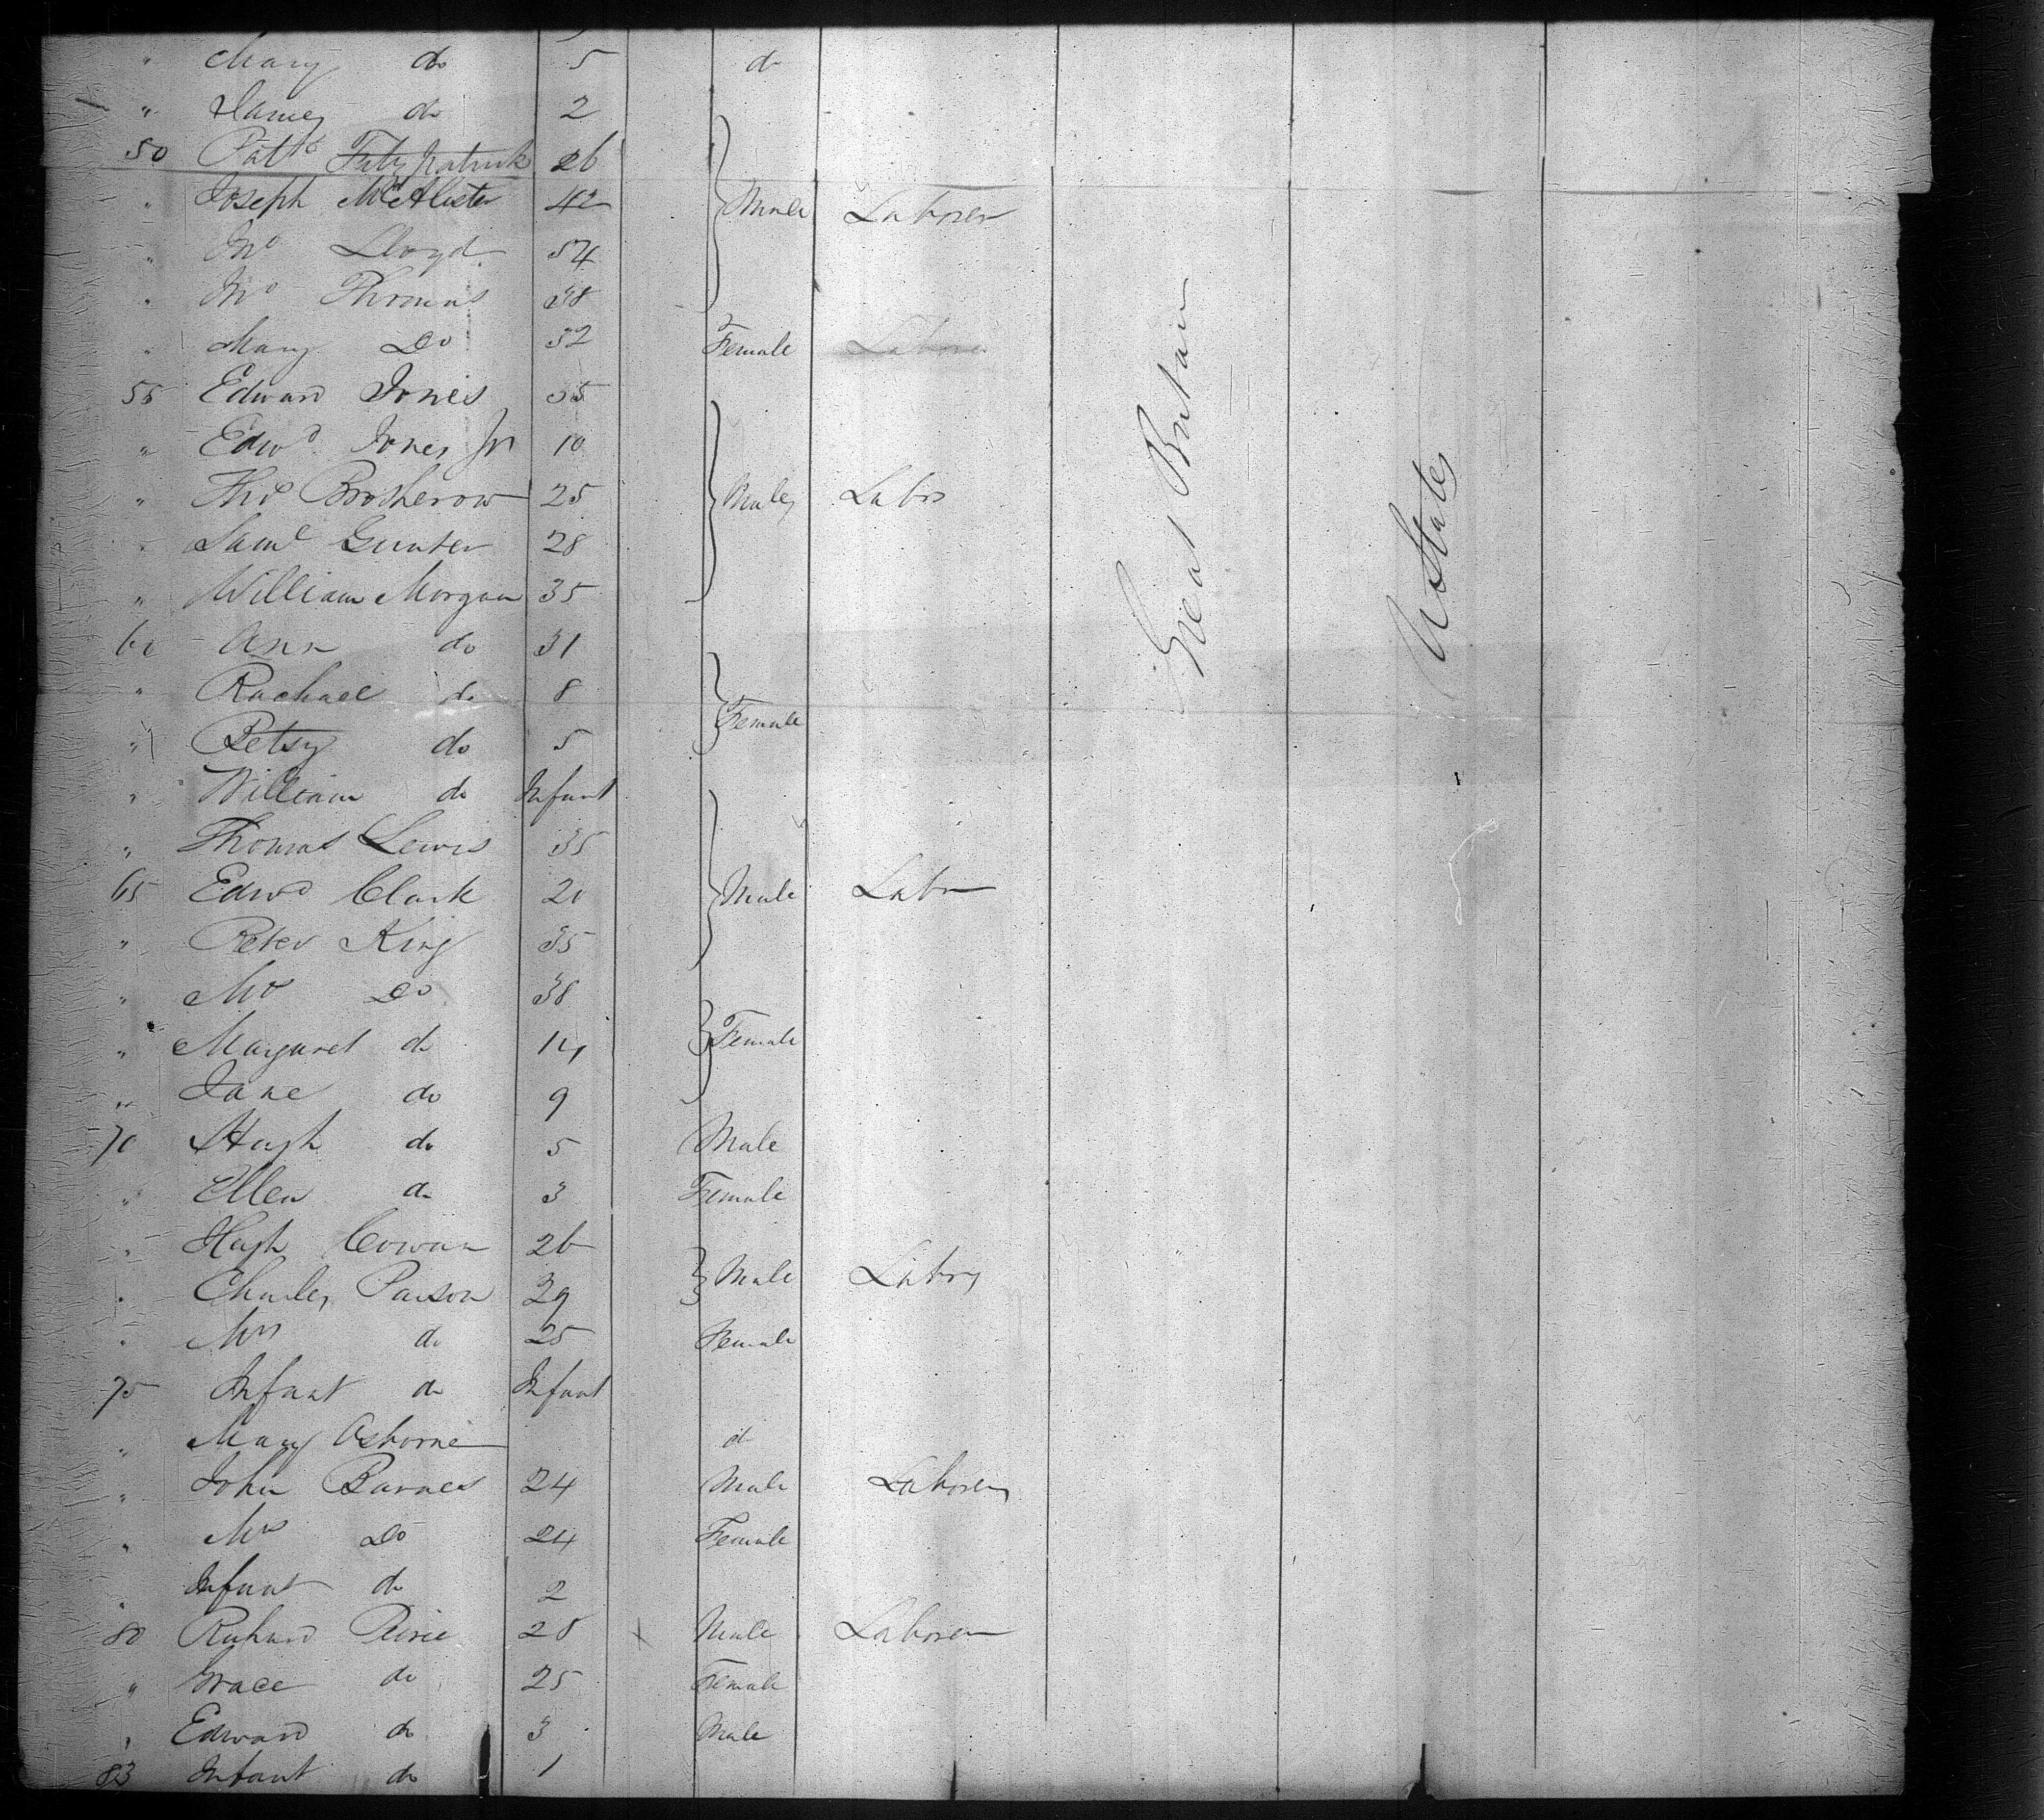 " Mary do 5 do
" James do 2
50 Patk Fitzpatrick 26
" Joseph McAlister 42 Males Laborer
" Jno Lloyd 54
" Jno Thomas 38
" Mary Do 32 Female Laborer
55 Edward Jones 35
" Edwd Jones Jr 10
" Thos Brotherow 25 Males Labrs
" Saml Gunter 28
" William Morgan 35
60 Ann do 31
" Rachael do 8
" Betsy do 5 Female
" William do Infant
" Thomas Lewis 35
65 Edwd Clark 20 Male Labr
" Peter King 35
" Mrs Do 38
" Margaret do 14 Female
" Jane do 9
70 Hugh do 5 Male
" Ellen do 3 Female
" Hugh Cowan 26
" Charles Parson 29 Male Labrs
" Mrs do 25 Female
75 Infant do Infant
" Mary Osborne do
" John Barnes 24 Male Laborer
" Mrs Do 24 Female
" Infant do 2
80 Richard 28 Male Laborer
" Grace do 25 Female
" Edward do 3 Male
83 Infant do 1
Great Britain
U States